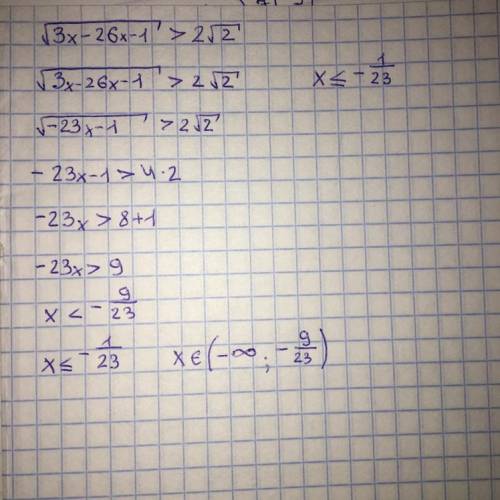 √(3x-26x-1) > 2√2
√(3x-26x-1) > 2√2 x ≤ -1/23
√(-23x-1) > 2√2
- 23x-1 > 4·2
-23x > 8+1
-23x > 9
x < -9/23
x ≤ -1/23 x ∈ (-∞ ; -9/23)